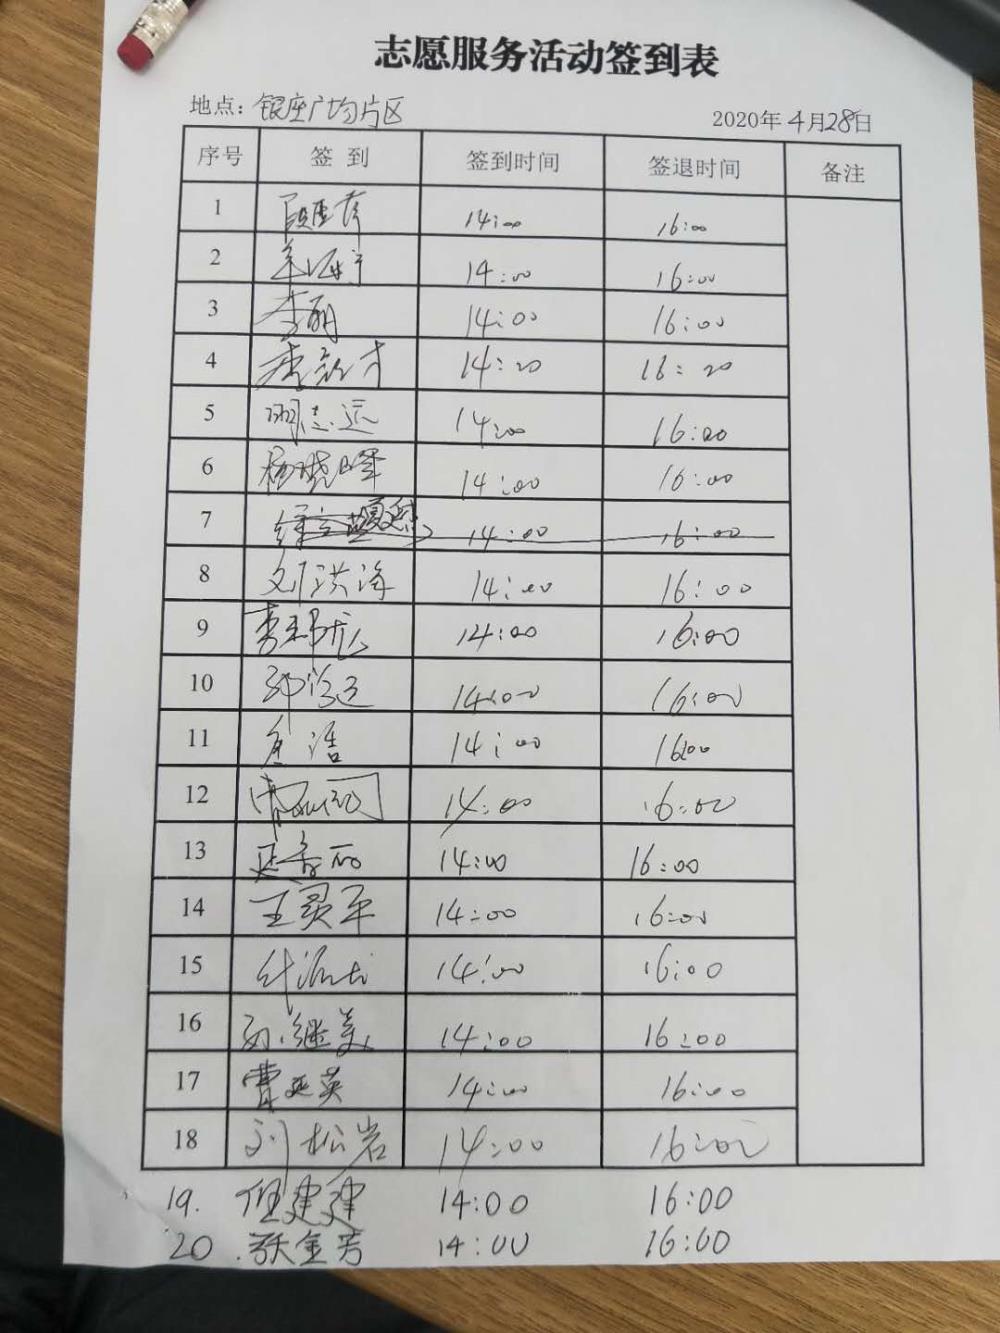 志愿服务活动签到表
地点：银座广场片区 2020年4月28日
序号 签到 签到时间 签退时间 备注
1 14:00 16:00
2 14:00 16:00
3 李丽 14:00 16:00
4 14:20 16:20
5 明志远 14:00 16:00
6 杨晓峰 14:00 16:00
7 14:00 16:00
8 洪海 14:00 16:00
9 李 14:00 16:00
10 14:00 16:00
11 浩 14:00 16:00
12 14:00 16:00
13 14:00 16:00
14 王灵平 14:00 16:00
15 14:00 16:00
16 孙继美 14:00 16:00
17 曹延英 14:00 16:00
18 刘松岩 14:00 16:00
19. 但建建 14:00 16:00
20. 张金芳 14:00 16:00